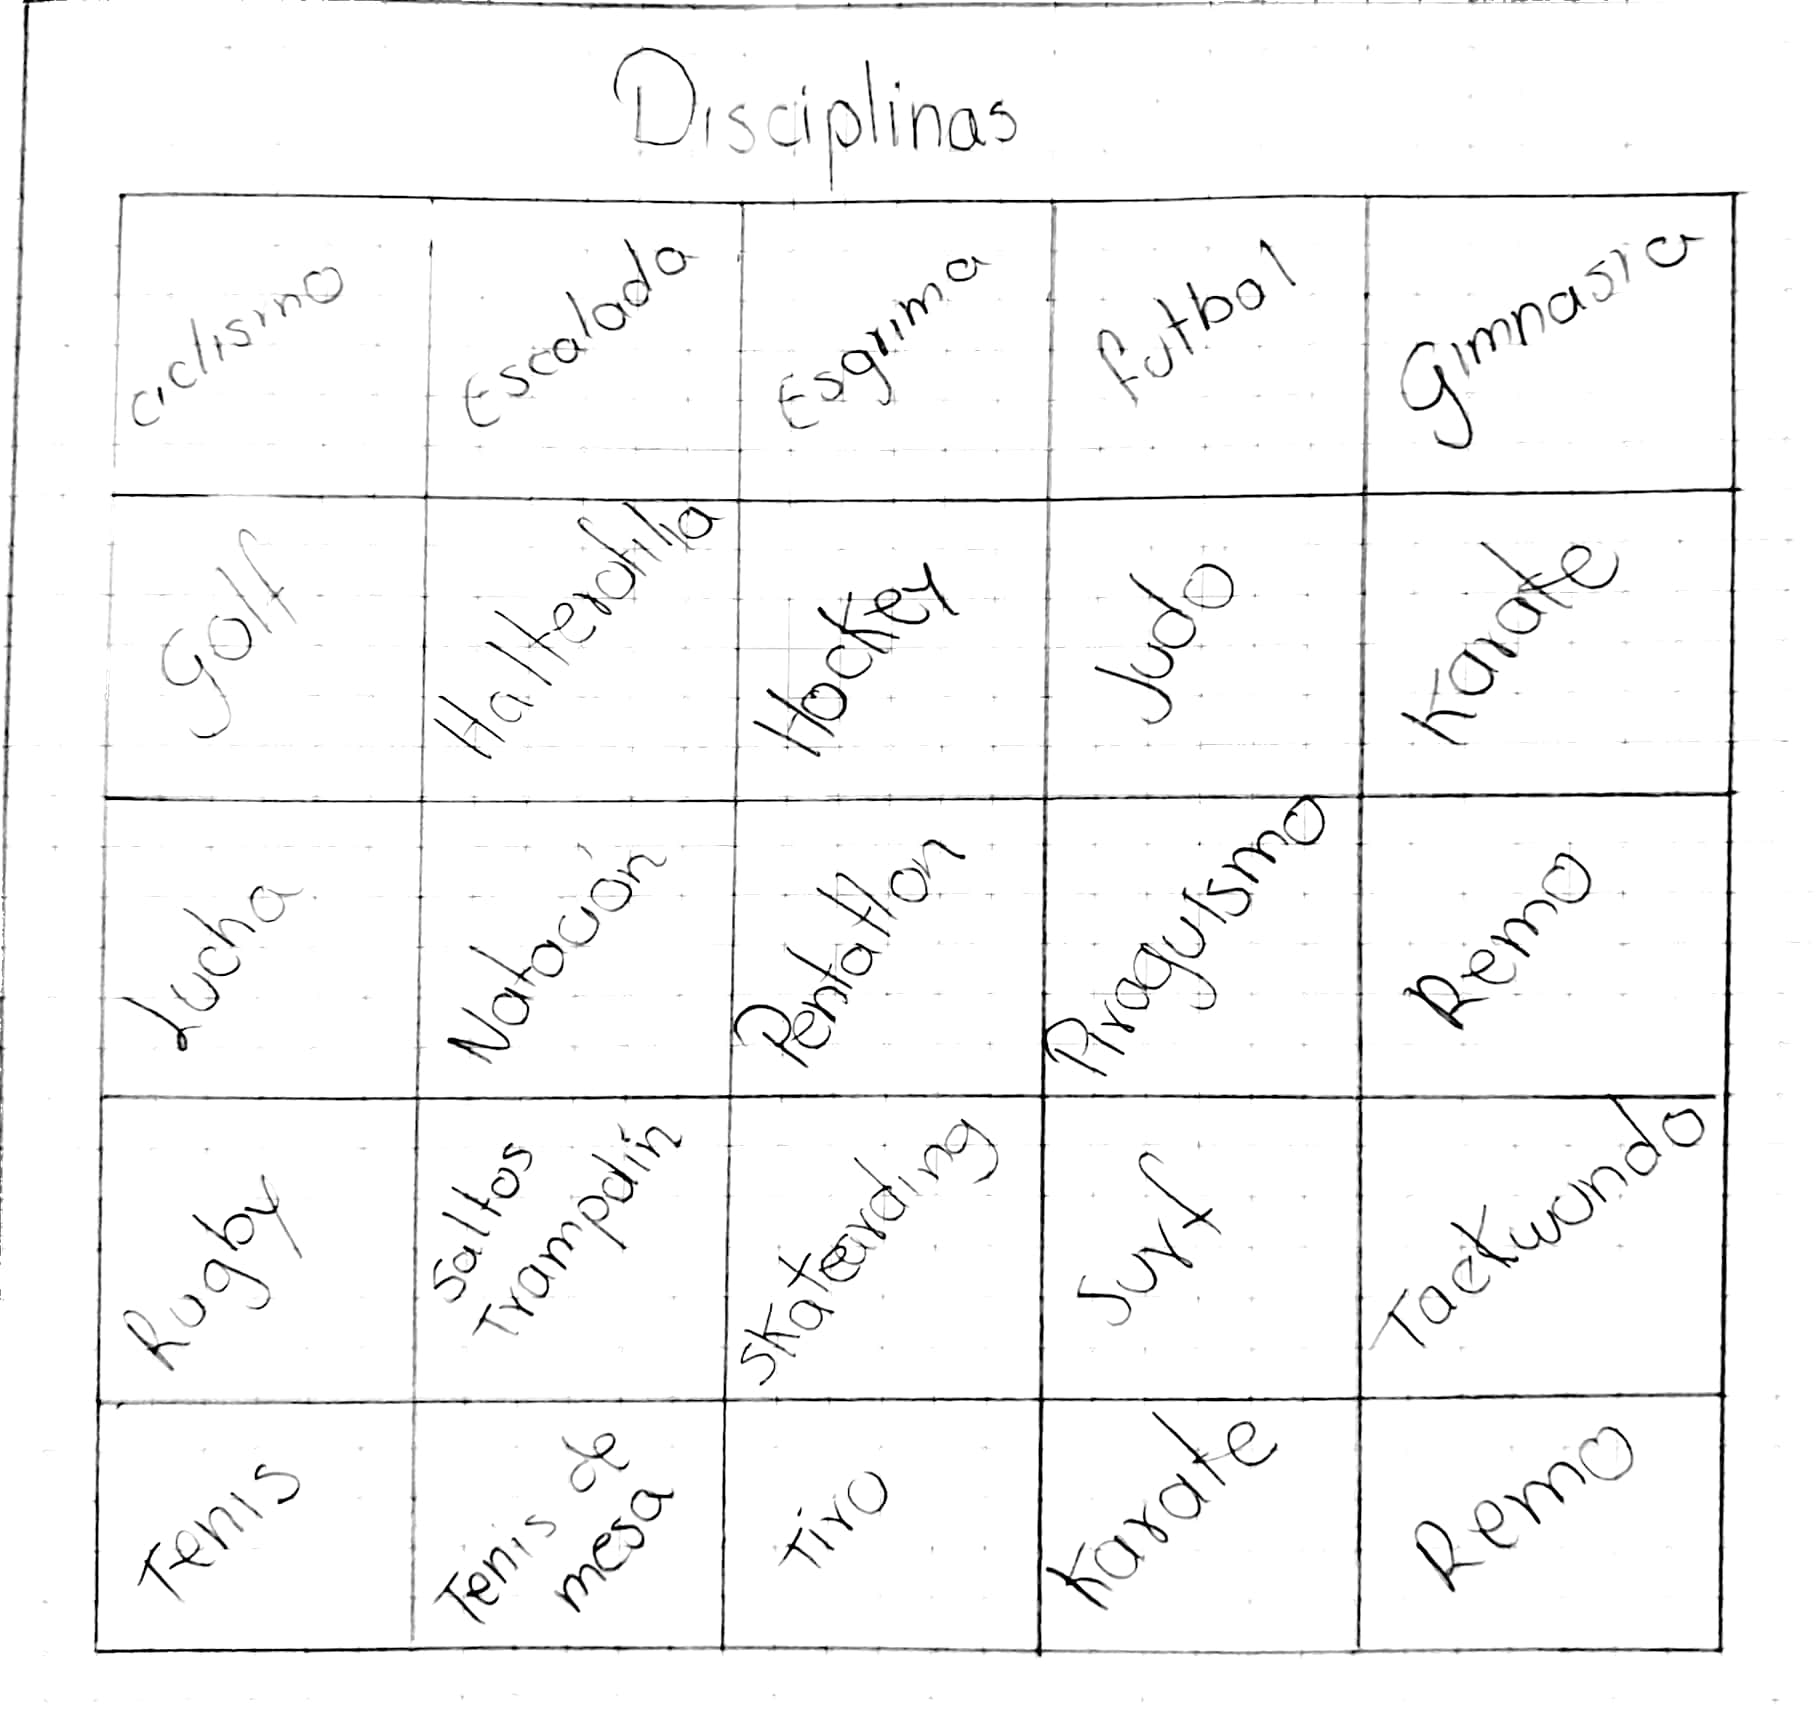 Disciplinas
ciclismo Escalada Esgrima futbol Gimnasia
Golf Halterofilia Hockey Judo Karate
Lucha Natación Pentatlon Piraguismo Remo
Rugby Saltos Trampolín Skatearding Surf Taekwondo
Tenis Tenis de mesa Tiro Karate Remo